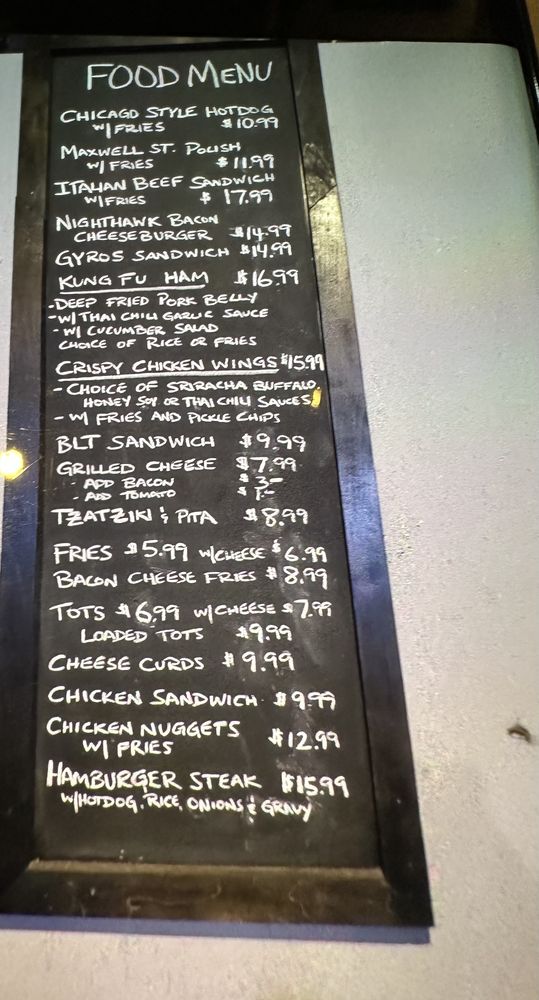 FOOD MENU
CHICAGO STYLE HOTDOG
W/FRIES $10.99
MAXWELL ST. POLISH
W/ FRIES $11.99
ITALIAN BEEF SANDWICH
W/FRIES $17.99
NIGHTHAWK BACON
CHEESEBURGER $14.99
GYROS SANDWICH $14.99
KUNG FU HAM $16.99
-DEEP FRIED PORK BELLY
-W/ THAI CHILI GARLIC SAUCE
- W/ CUCUMBER SALAD
CHOICE OF RICE OR FRIES
CRISPY CHICKEN WINGS $15.99
- CHOICE OF SRIRACHA BUFFALO,
HONEY SOY OR THAI CHILI SAUCES
- W/ FRIES AND PICKLE CHIPS
BLT SANDWICH $9.99
GRILLED CHEESE $7.99
- ADD BACON $3-
- ADD TOMATO $1-
TZATZIKI & PITA $8.99
FRIES $5.99 W/CHEESE $6.99
BACON CHEESE FRIES $8.99
TOTS $6.99 W/CHEESE $7.99
LOADED TOTS $9.99
CHEESE CURDS $9.99
CHICKEN SANDWICH $9.99
CHICKEN NUGGETS
W/ FRIES $12.99
HAMBURGER STEAK $15.99
W/HOTDOG, RICE, ONIONS & GRAVY